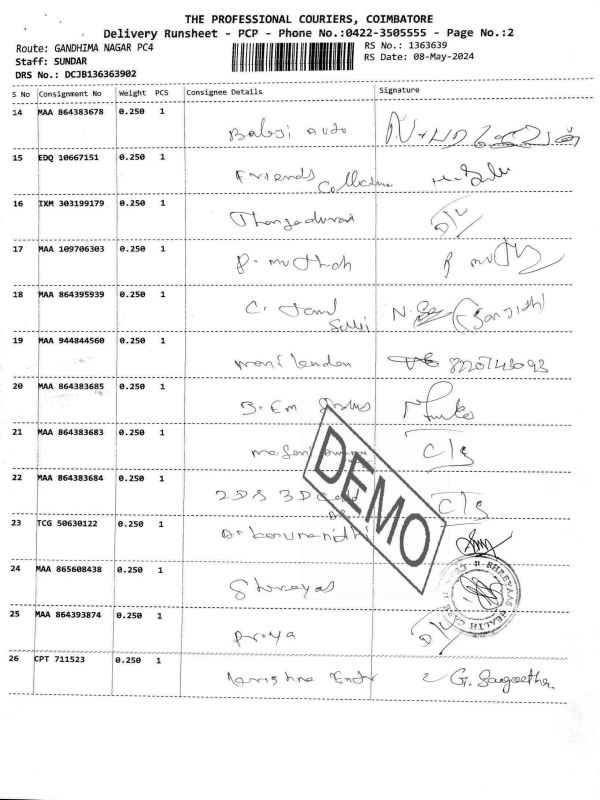 THE PROFESSIONAL COURIERS, COIMBATORE
Delivery Runsheet - PCP - Phone No.:0422-3505555 - Page No.:2
Route: GANDHIMA NAGAR PC4
RS No.: 1363639
Staff: SUNDAR
RS Date: 08-May-2024
DRS No.: DCJB136363902
S No Consignment No Weight PCS Consignee Details Signature
14 MAA 864383678 0.250 1 Balaji Auto
15 EDQ 10667151 0.250 1 Friends
Collection
16 IXM 303199179 0.250 1 Thangadurai D/L
17 MAA 109706303 0.250 1 P. muthah P muthy
18 MAA 864395939 0.250 1 C. Tamil N. (Sanjidh)
Selvi
19 MAA 944844560 0.250 1 8220743093
20 MAA 864383685 0.250 1 B. Em
21 MAA 864383683 0.250 1 C/S
22 MAA 864383684 0.250 1 2DS 3D C/S
23 TCG 50630122 0.250 1 Dr karunanidhi
24 MAA 865608438 0.250 1 Shreyas
25 MAA 864393874 0.250 1 Priya D/L
26 CPT 711523 0.250 1 G. Sangeetha
DEMO
SHREYAAS HEALTH CARE